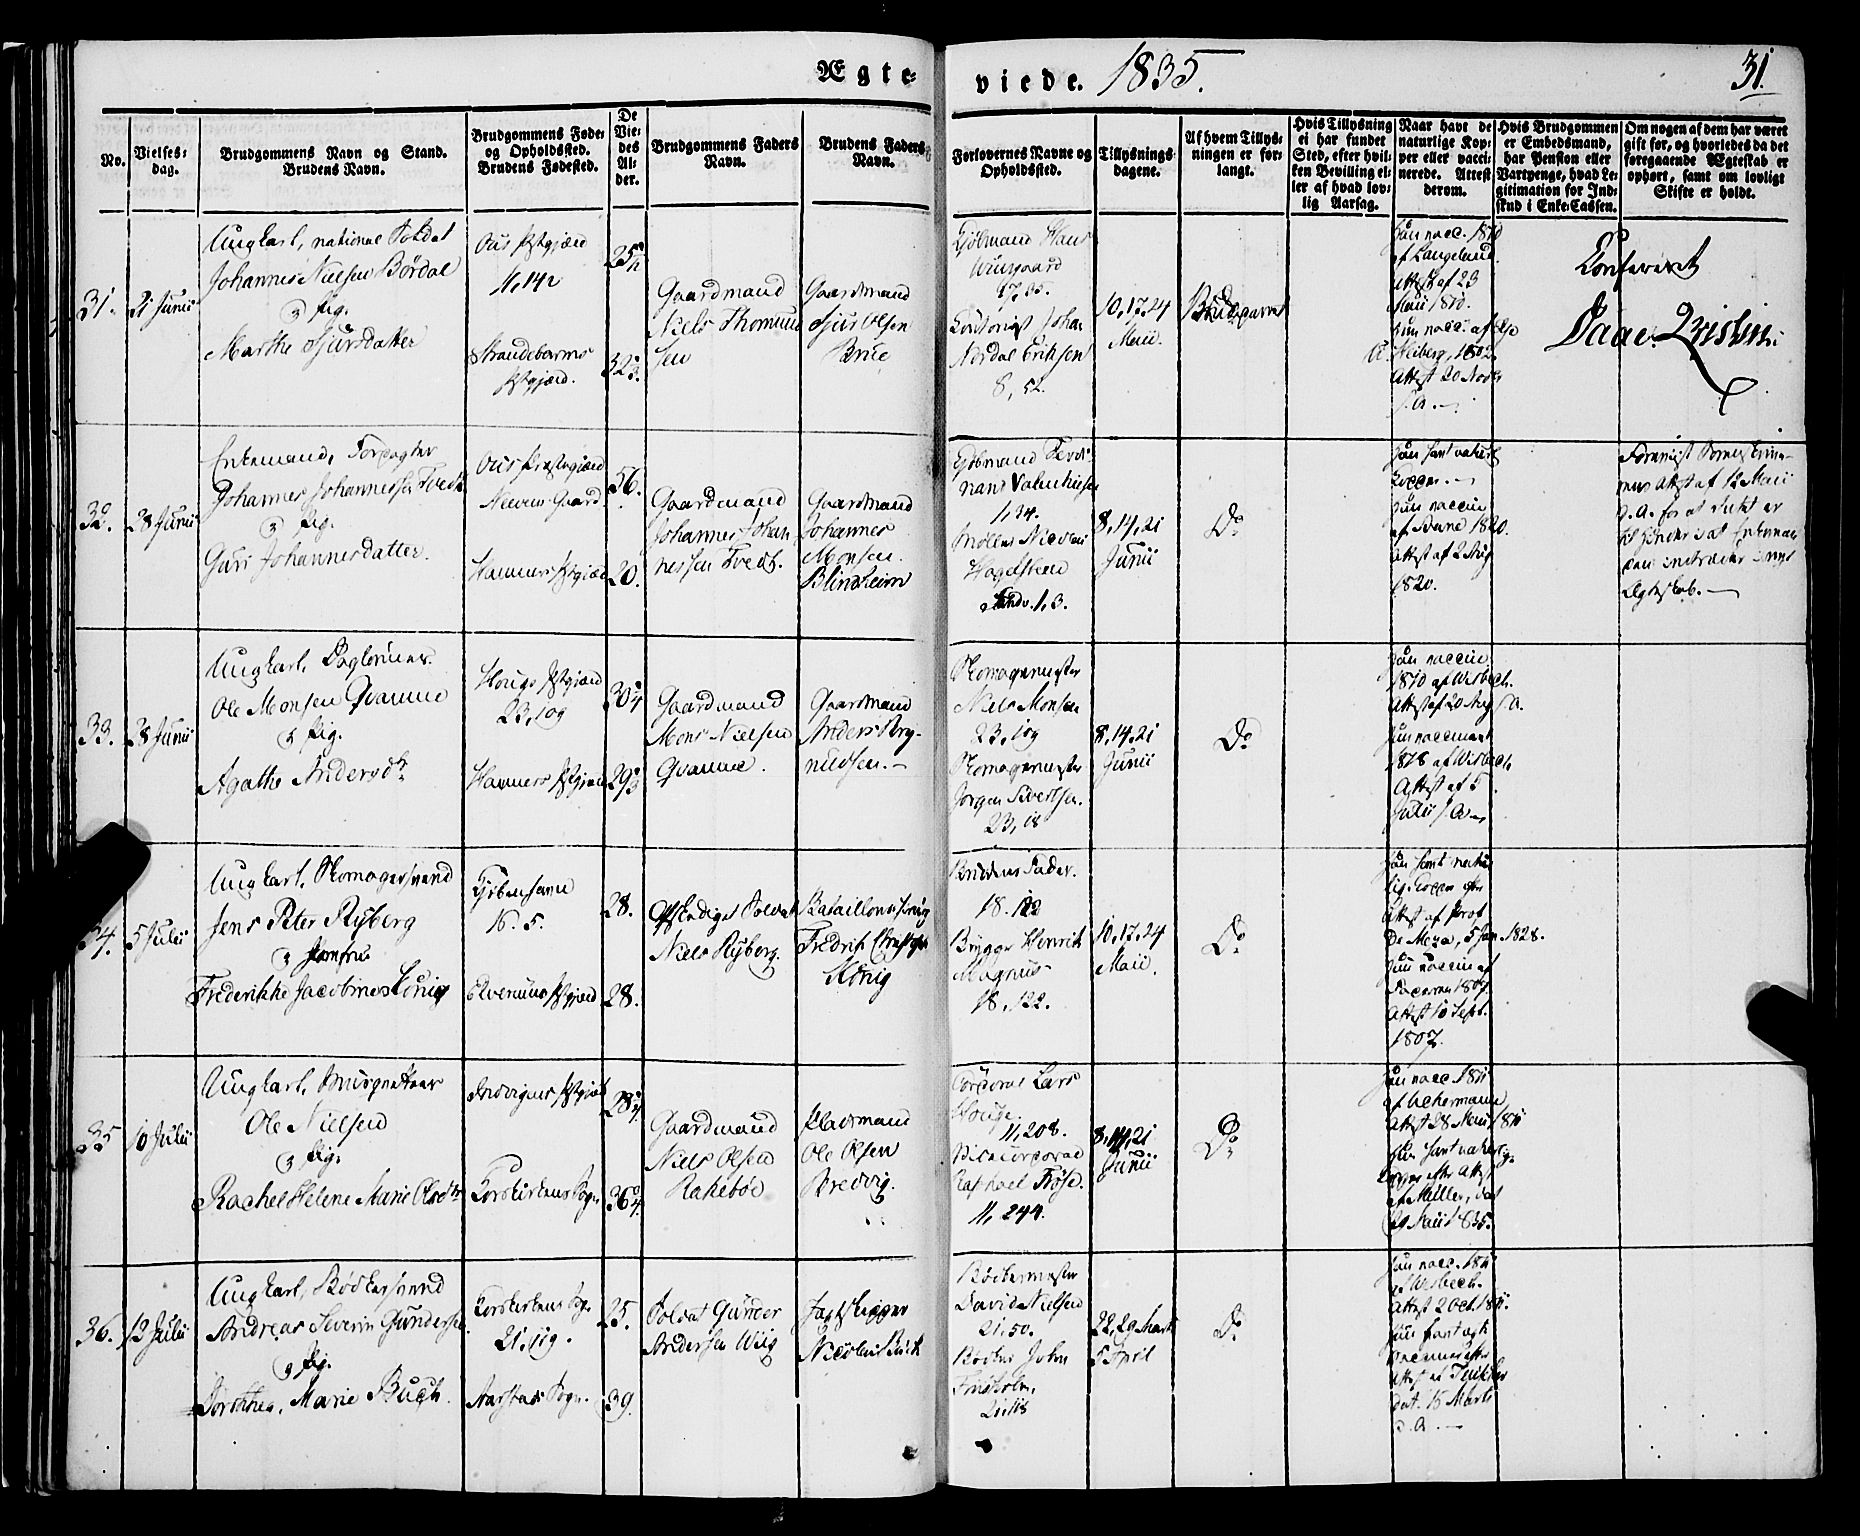 Ægte-
viede. 1835.
31.
No.
Vielses-
dag.
Brudgommens Navn og Stand.
Brudens Navn.
Brudgommens Føde-
og Opholdssted.
Brudens Fødested.
De
Vie-
des
Al-
der.
Brudgommens Faders
Navn.
Brudens Faders
Navn.
Forlovernes Navne og
Opholdssted.
Tillysnings-
dagene.
Af hvem Tillys-
ningen er for-
langt.
Hvis Tillysning
ei har fundet
Sted, efter hvil-
ken Bevilling el-
ler af hvad lov-
lig Aarsag.
Naar havt de
naturlige Kop-
per eller vacci-
nerede. Attest
derom.
Hvis Brudgommen
er Embedsmand,
har Pension eller
Vartpenge, hvad Le-
gitimation for Ind-
skud i Enke-Cassen.
Om nogen af dem har været
gift før, og hvorledes da det
foregaaende Ægteskab er
ophørt, samt om lovligt
Skifte er holdt.
31.
21 Junii
Ungkarl, national Soldat
Johannes Nielsen Børdal
3 Pig.
Marthe Sjursdatter
Ous Præstgjæld
11,142
Strandebarms
Præstgjæld.
Gaardmand
Niels Thomas
sen
Gaardmand
Sjur Olsen
Kjøbmand Hans
17,35.
Nordal Eriksen
8, 52.
10, 17, 24
Maii.
Brudeparret
Han vacc. 1810
af Langeland
Attest af 23
Maii 1810.
Heiberg, 1802.
Attest 20 Novbr
s. A.
Confereret
Daae.
32.
28 Junii
Enkemand, Forpagter
Johannes Johannessen Tvedt
3 Pig.
Guri Johannesdatter.
Ous Præstegjæld
Hammers Præstgjæld
56.
20.
Gaardmand
Johannes Johan
nessen Tvedt.
Gaardmand
Johannes
Monsen
Blindheim
Kjøbmand Ferdi
nant Valentinsen
1,34.
Møller Nicolai
Hagelsteen
Sandv. 1,3.
8, 14, 21
Junii
Do
Han havt naturl
Kopper.
Hun vaccin
1820.
Attest af 2 Aug
1820.
Attest af 12 Maii
d. A. for at Intet er
til Hinder at Enkeman
den indtræder i nyt
Ægteskab.
33.
28 Junii
Ungkarl, Dagleiner.
Ole Monsen Qvamme
3 Pig.
Agathe Andersdtr
Hougs Præstgjæld
23,109
Hammers Præstgjæld
Gaardmand
Mons Nielsen
Qvamme.
Gaardmand
Anders Bryn-
nildsen.
Skomagermester
Niels Monsen
23,109
Skomagermester
Jørgen Sivertsen.
23,18
8, 14, 21
Junii
Do
Han vaccin.
1810 af Wisbech.
Attest af 20 Aug s. A.
Hun vaccineret
1818 af Wisbech.
Attest af 5
Julii s. A.
34.
5 Julii
Ungkarl, Skomagersvend
Jens Peter Ryberg
3 Jomfru
Frederikke Jacobine König
Kjøbenhavn
16. 5.
Elverums Præstgjæld
28.
28.
Afskediget Soldat
Niels Ryberg.
Fredrik Christoph
König
Brudens Fader.
18. 122
Brygger Henrik
Magnus
18, 122.
10, 17, 24
Maii.
Do
Han havt natur
lig Kopper efter
Attest af Prof
De Meza, 5 Jan. 1828.
Hun vaccin af
1807.
Attest 10 Sept.
1807.
35
10 Julii
Ungkarl,
Ole Nielsen
3 Pig.
Rachel Helene Marie Olsdtr
Indvigens Præstgjæld
Korskirkens Sogn
Gaardmand
Niels Olsen
Rakebøe
Pladsmand
Ole Olsen
Bredvig.
Corporal Lars
Houge.
11,208.
Vicecorporal
Raphael Frøse.
11, 244.
8, 14, 21
Junii
Do
Han vacc. 1811
af Ackermann,
Attest 28 Maii 1811
Hun havt naturlig.
Kopper efter Attest
af Müller, dat
29 Maii 1835.
36.
12 Julii
Ungkarl, Bødkersvend
Andreas Severin Gundersen
3 Pig.
Dorothea Marie Buch.
Korskirkens Sogn
21,119.
Aarstads Sogn.
25.
39.
Soldat Gunder
Andersen Wiig
Jagtskipper
Nicolai Buch
Bødkermester
David Nielsen
21,50.
Bødker John
Friisholm,
21,115
22, 29 Marts
5 April
Do
Han vacc. 1811
af Wisbech.
Attest 2 Oct. 1811.
dat. 15 Marts
d. A.